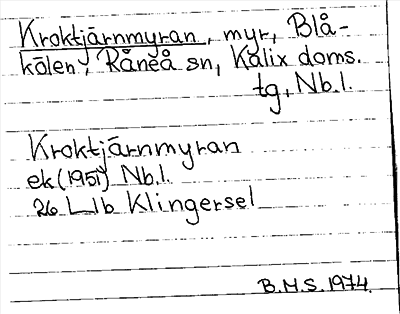 Kroktjärnmyran, myr, Blå-
kölen, Råneå sn, Kalix doms.
tg, Nb.l.
Kroktjärnmyran
ek (1951) Nb.l.
26 L Ib Klingersel
B.M.S. 1974.